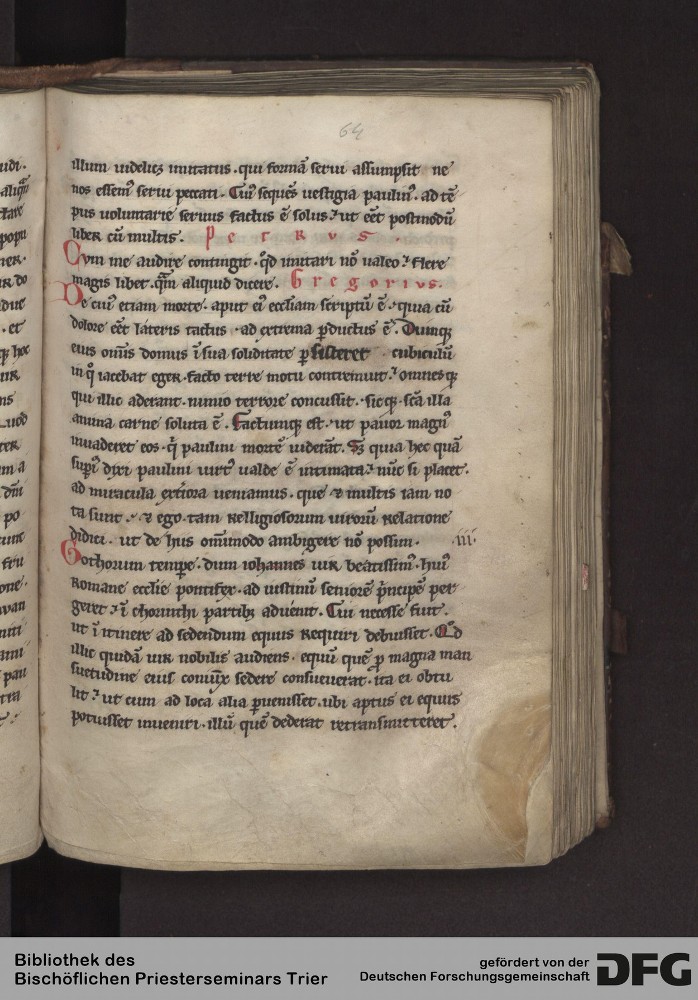 64
illum uideliꝫ imitatus. qui formā serui assumpsit ne
nos essem᾽ serui peccati. Cui᷒ seq̄ēs uestigia paulin᷒. ad tē
pus uoluntarie seruus factus ē solus. ut eēt postmodū
liber cū multis. Petrus.
Cum me audire contingit. qd imitari nō ualeo. flere
magis libet. qm̄ aliquid dicere. Gregorius.
De cui᷒ etiam morte. aput ei᷒ eccliam scriptū ē. quia cū
dolore eēt lateris tactus. ad extrema ꝑductus ē. Dumqꝫ
eius om̄is domus ī sua soliditate ꝑsisteret cubiculū
in q̊ iacebat eger. facto terre motu contremuit. omnesqꝫ
qui illic aderant. nimio terrore concussit. sicqꝫ scā illa
anima carne soluta ē. Factumqꝫ est. ut pauor magn᷒
inuaderet eos. q̄ paulini mortē uiderāt. Sꝫ quia hec quā
sup᷒ dixi paulini uirt᷒ ualde ē intimata. nūc si placet.
ad miracula exteriora ueniamus. que & multis iam no
ta sunt. & ego tam relligiosorum uirorū relatione
didici. ut de hus om̄imodo ambigere nō possim. .iii.
Gothorum tempe. dum iohannes uir beatissim᷒. hui᷒
Romane ecclie pontifex. ad iustinū seniorē p̄ncipē per
geret. ī chorinthi partibꝫ aduenit. Cui necesse fuit.
ut ī itinere ad sedendum equus requiri debuisset. Qd
illic quidā uir nobilis audiens. equū quē ꝓ magna man
suetudine eius coniūx sedere consueuerat. ita ei obtu
lit. ut cum ad loca alia ꝑuenisset. ubi aptus ei equus
potuisset inueniri. illū quē dederat retransmitteret.
Bibliothek des
Bischöflichen Priesterseminars Trier
gefördert von der
Deutschen Forschungsgemeinschaft
DFG